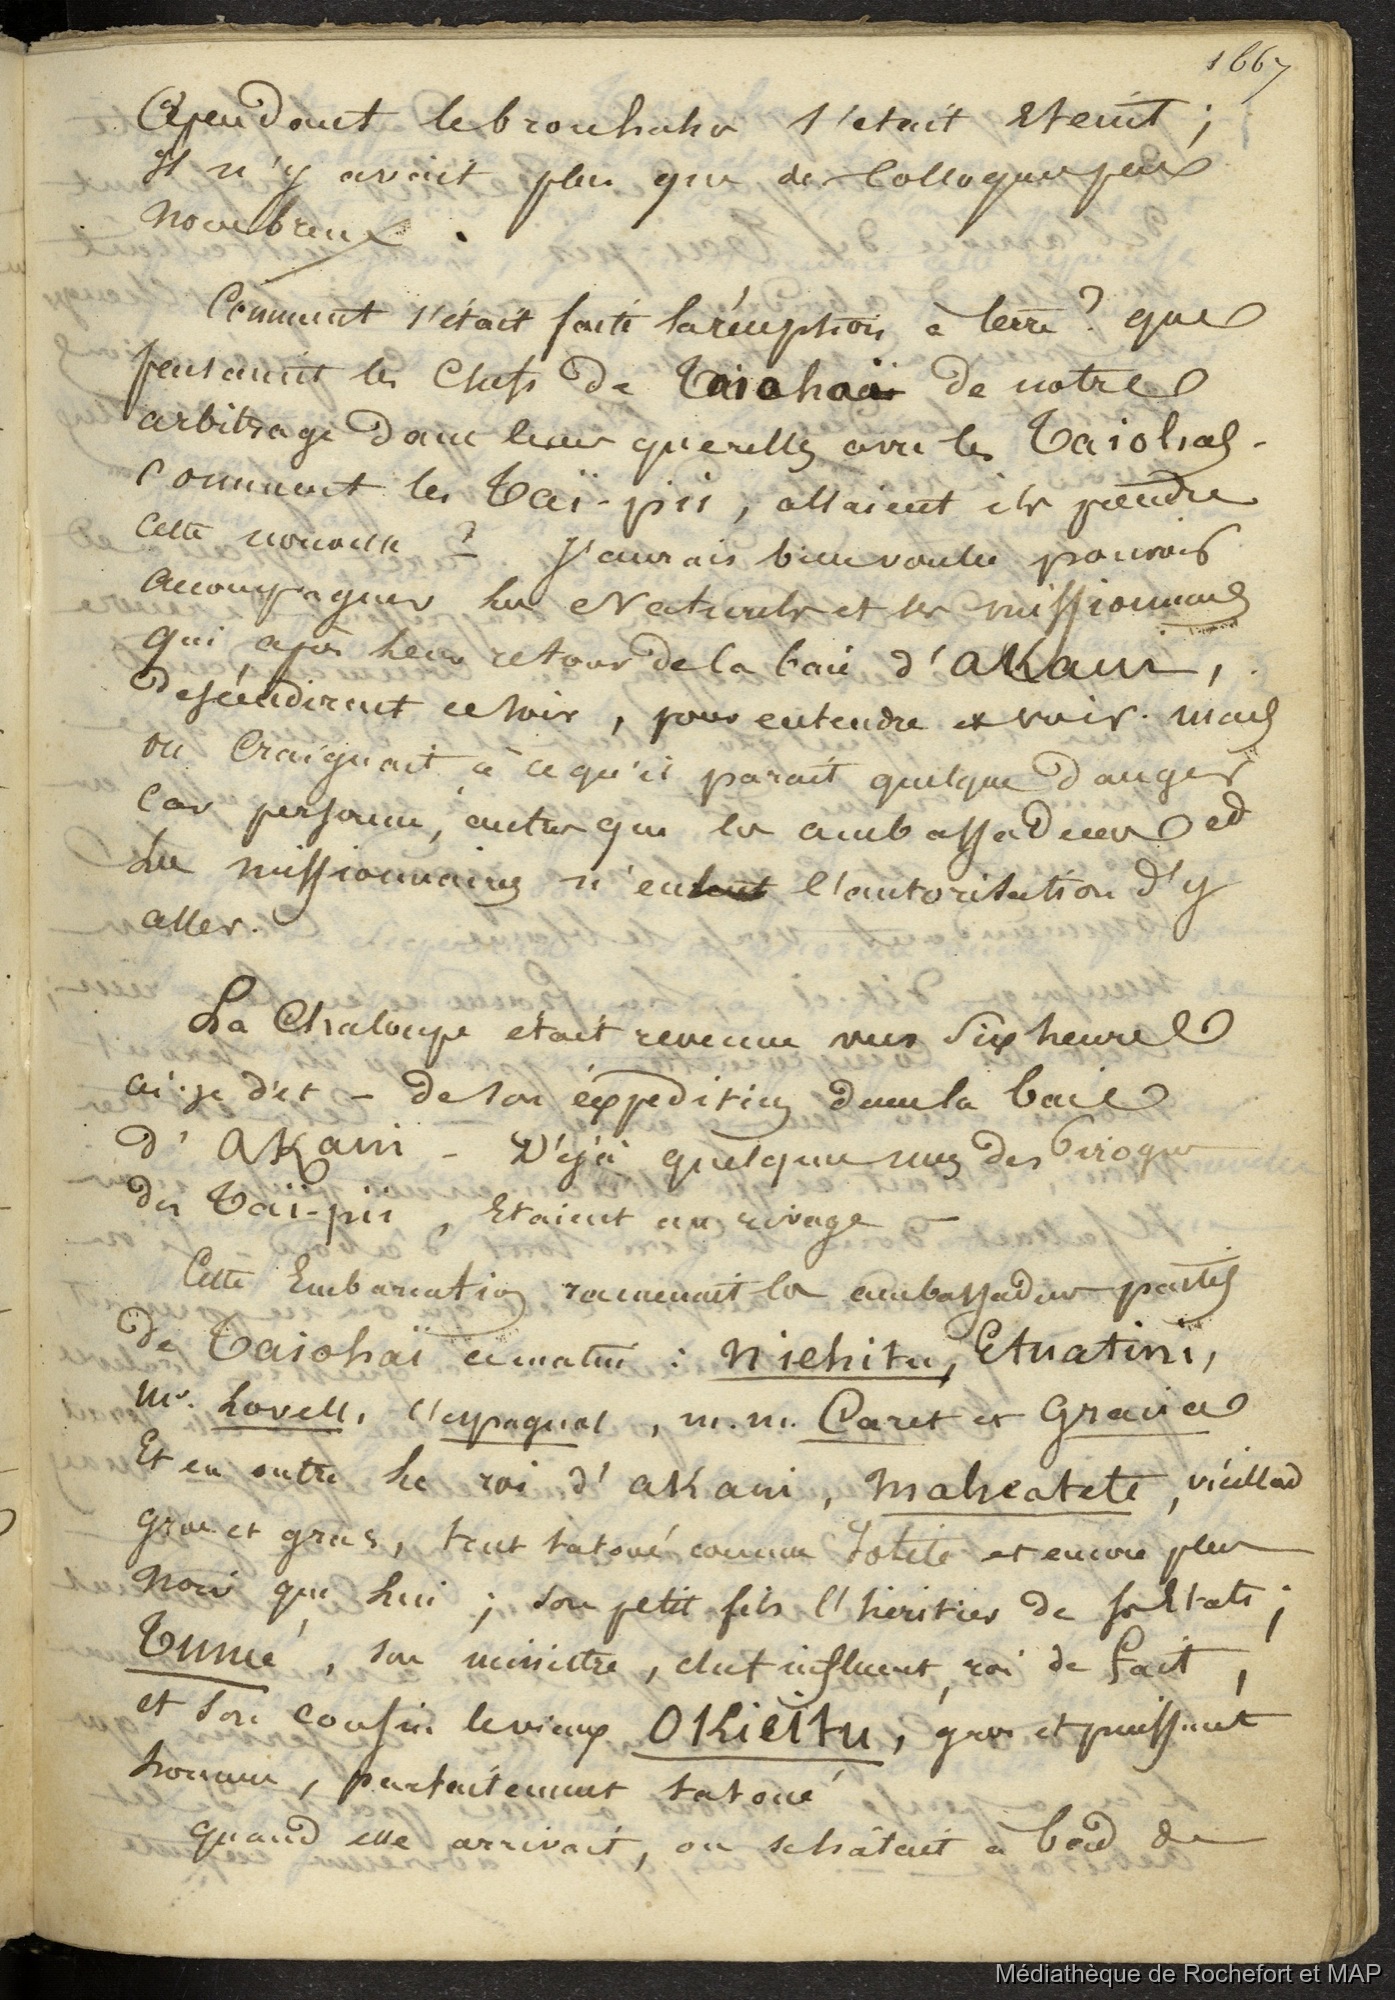 1667
Cependant le brouhaha s'etait Eteint ;
Il n'y avait plus que de Colloques peu
nombreux .
Comment s'était faite la réception à terre ? que
pensaient les Chefs de Taiohaï de notre
arbitrage dans leurs querelles avec les Taiohas -
Comment les Taï-pii , allaient ils prendre
cette nouvelle ? J'aurais bien voulu pouvoir
accompagner les Naturels et les missionnaires
qui après leur retour de la baie d'AKani ,
descendirent ce soir , pour entendre et voir . mais
on Craignait à ce qu'il parait quelque danger
Car personne , autre que les ambassadeurs et
les missionnaires n'eut l'autorisation d'y
aller .
La Chaloupe était revenue vers Six heures
ai-je dit - de son éxpedition dans la baie
d'AKani - Déjà quelques unes des Pirogues
des Taï-pii , Etaient au rivage -
Cette Embarcation ramenait les ambassadeurs partis
de Taiohaï ce matin : Niehitu , Etuatini ,
Mr. Lovell , l'espagnol , m.m. Caret et Gracia
Et en outre le roi d'aKani , Maheatete , vieillard
gros et gras , tout tatoué comme Totété et encore plus
noir que lui ; son petit fils l'héritier de ses Etats ;
Tumé , son ministre , chef influent , roi de fait ,
et son cousin le vieux OKieitu , gros et puissant
homme , parfaitement tatoué
quand elle arrivait , on se hâtait à bord de
Médiathèque de Rochefort et MAP